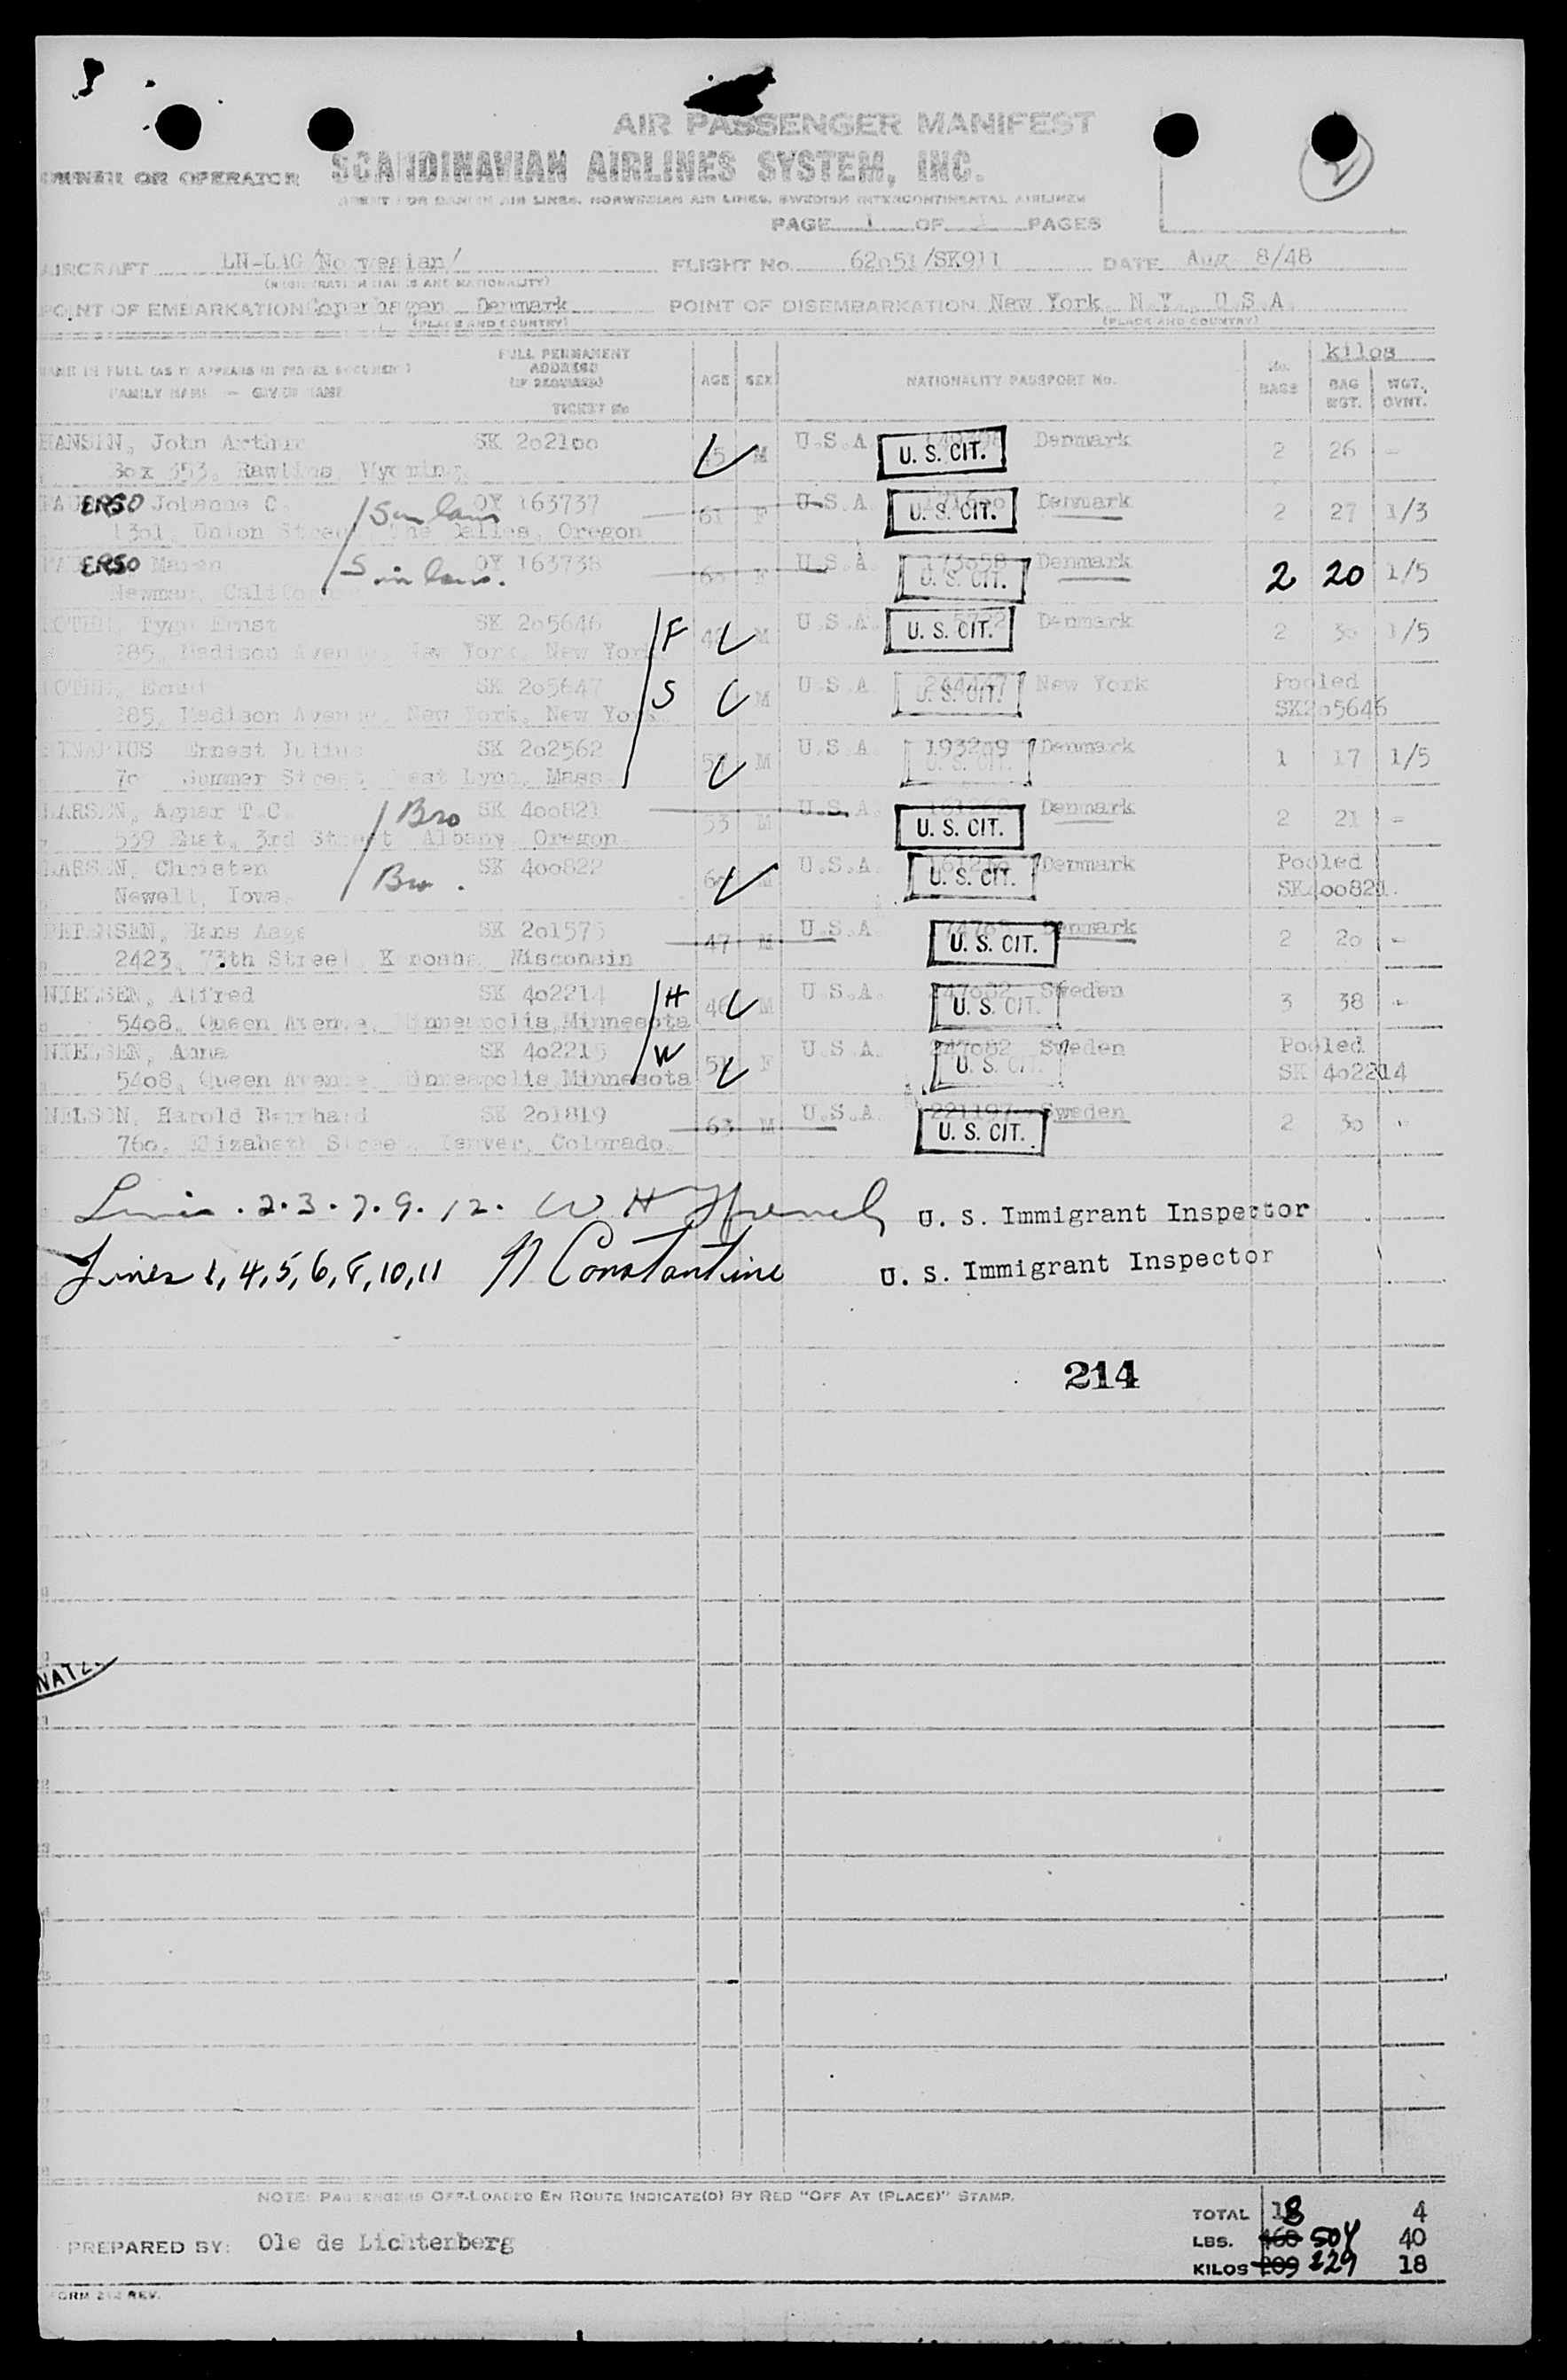 AIR PASSENGER MANIFEST
OWNER OR OPERATOR SCANDINAVIAN AIRLINES SYSTEM, INC.
AGENT FOR DANISH AIR LINES, NORWEGIAN AIR LINES, SWEDISH INTERCONTINENTAL AIRLINES
PAGE 1 OF 1 PAGES
AIRCRAFT LN-LAG /Norwegian/ FLIGHT No. 62o51/SK911 DATE Aug 8/48
(REGISTRATION MARKS AND NATIONALITY)
POINT OF EMBARKATION Copenhagen Denmark POINT OF DISEMBARKATION New York, N.Y., U.S.A.
(PLACE AND COUNTRY) (PLACE AND COUNTRY)
NAME IN FULL (AS IT APPEARS IN TRAVEL DOCUMENT) FULL PERMANENT ADDRESS (IF REQUIRED) AGE SEX NATIONALITY PASSPORT No. No. BAGS kilos
FAMILY NAME — GIVEN NAME TICKET No BAG WGT. WGT. OVNT.
HANSEN, John Arthur SK 2o21oo 45 M U.S.A. U. S. CIT. Denmark 2 26 -
Box 353, Rawlins, Wyoming
ERSO Johanne C /S in law OY 163737 61 F U.S.A. U. S. CIT. Denmark 2 27 1/3
13o1, Union Street, The Dalles, Oregon
ERSO Maren /S in law. OY 163738 F U.S.A. 173o58 U. S. CIT. Denmark 2 20 1/5
Newman, California
Tyge Ernst SK 2o5646 /F M U.S.A. U. S. CIT. Denmark 2 3o 1/5
285, Madison Avenue, New York, New York
SK 2o5647 S M U.S.A. 244447 U. S. CIT. New York Pooled
285, Madison Avenue, New York, New York SK2o5646
Ernest Julius SK 2o2562 M U.S.A. 1932o9 U. S. CIT. Denmark 1 17 1/5
7o Summer Street, West Lynn, Mass
LARSEN, Agner T.C. /Bro SK 4oo821 53 M U.S.A. U. S. CIT. Denmark 2 21 -
539 East, 3rd Street Albany, Oregon
LARSEN, Christen Bro. SK 4oo822 M U.S.A. U. S. CIT. Denmark Pooled
Newell, Iowa. SK4oo821.
PETERSEN, Hans Aage SK 2o1575 47 M U.S.A. U. S. CIT. Denmark 2 2o -
2423, 73th Street, Kenosha, Wisconsin
NIELSEN, Alfred SK 4o2214 /H 46 M U.S.A. 247o82 U. S. CIT. Sweden 3 38 -
54o8, Queen Avenue, Minneapolis, Minnesota
NIELSEN, Anna SK 4o2215 W 51 F U.S.A. 247o82 U. S. CIT. Sweden Pooled
54o8, Queen Avenue, Minneapolis, Minnesota SK 4o2214
NELSON, Harold Bernhard SK 2o1819 63 M U.S.A. 221197 U. S. CIT. Sweden 2 3o -
76o, Elizabeth Street, Denver, Colorado.
Lines . 2.3.7.9.12. W H French U. S. Immigrant Inspector
Lines 1,4,5,6,8,10,11 N Constantine U. S. Immigrant Inspector
214
NOTE: PASSENGERS OFF-LOADED EN ROUTE INDICATE(D) BY RED "OFF AT (PLACE)" STAMP.
TOTAL 18 4
LBS. 460 504 40
PREPARED BY: Ole de Lichterberg
KILOS 209 229 18
FORM 212 REV.